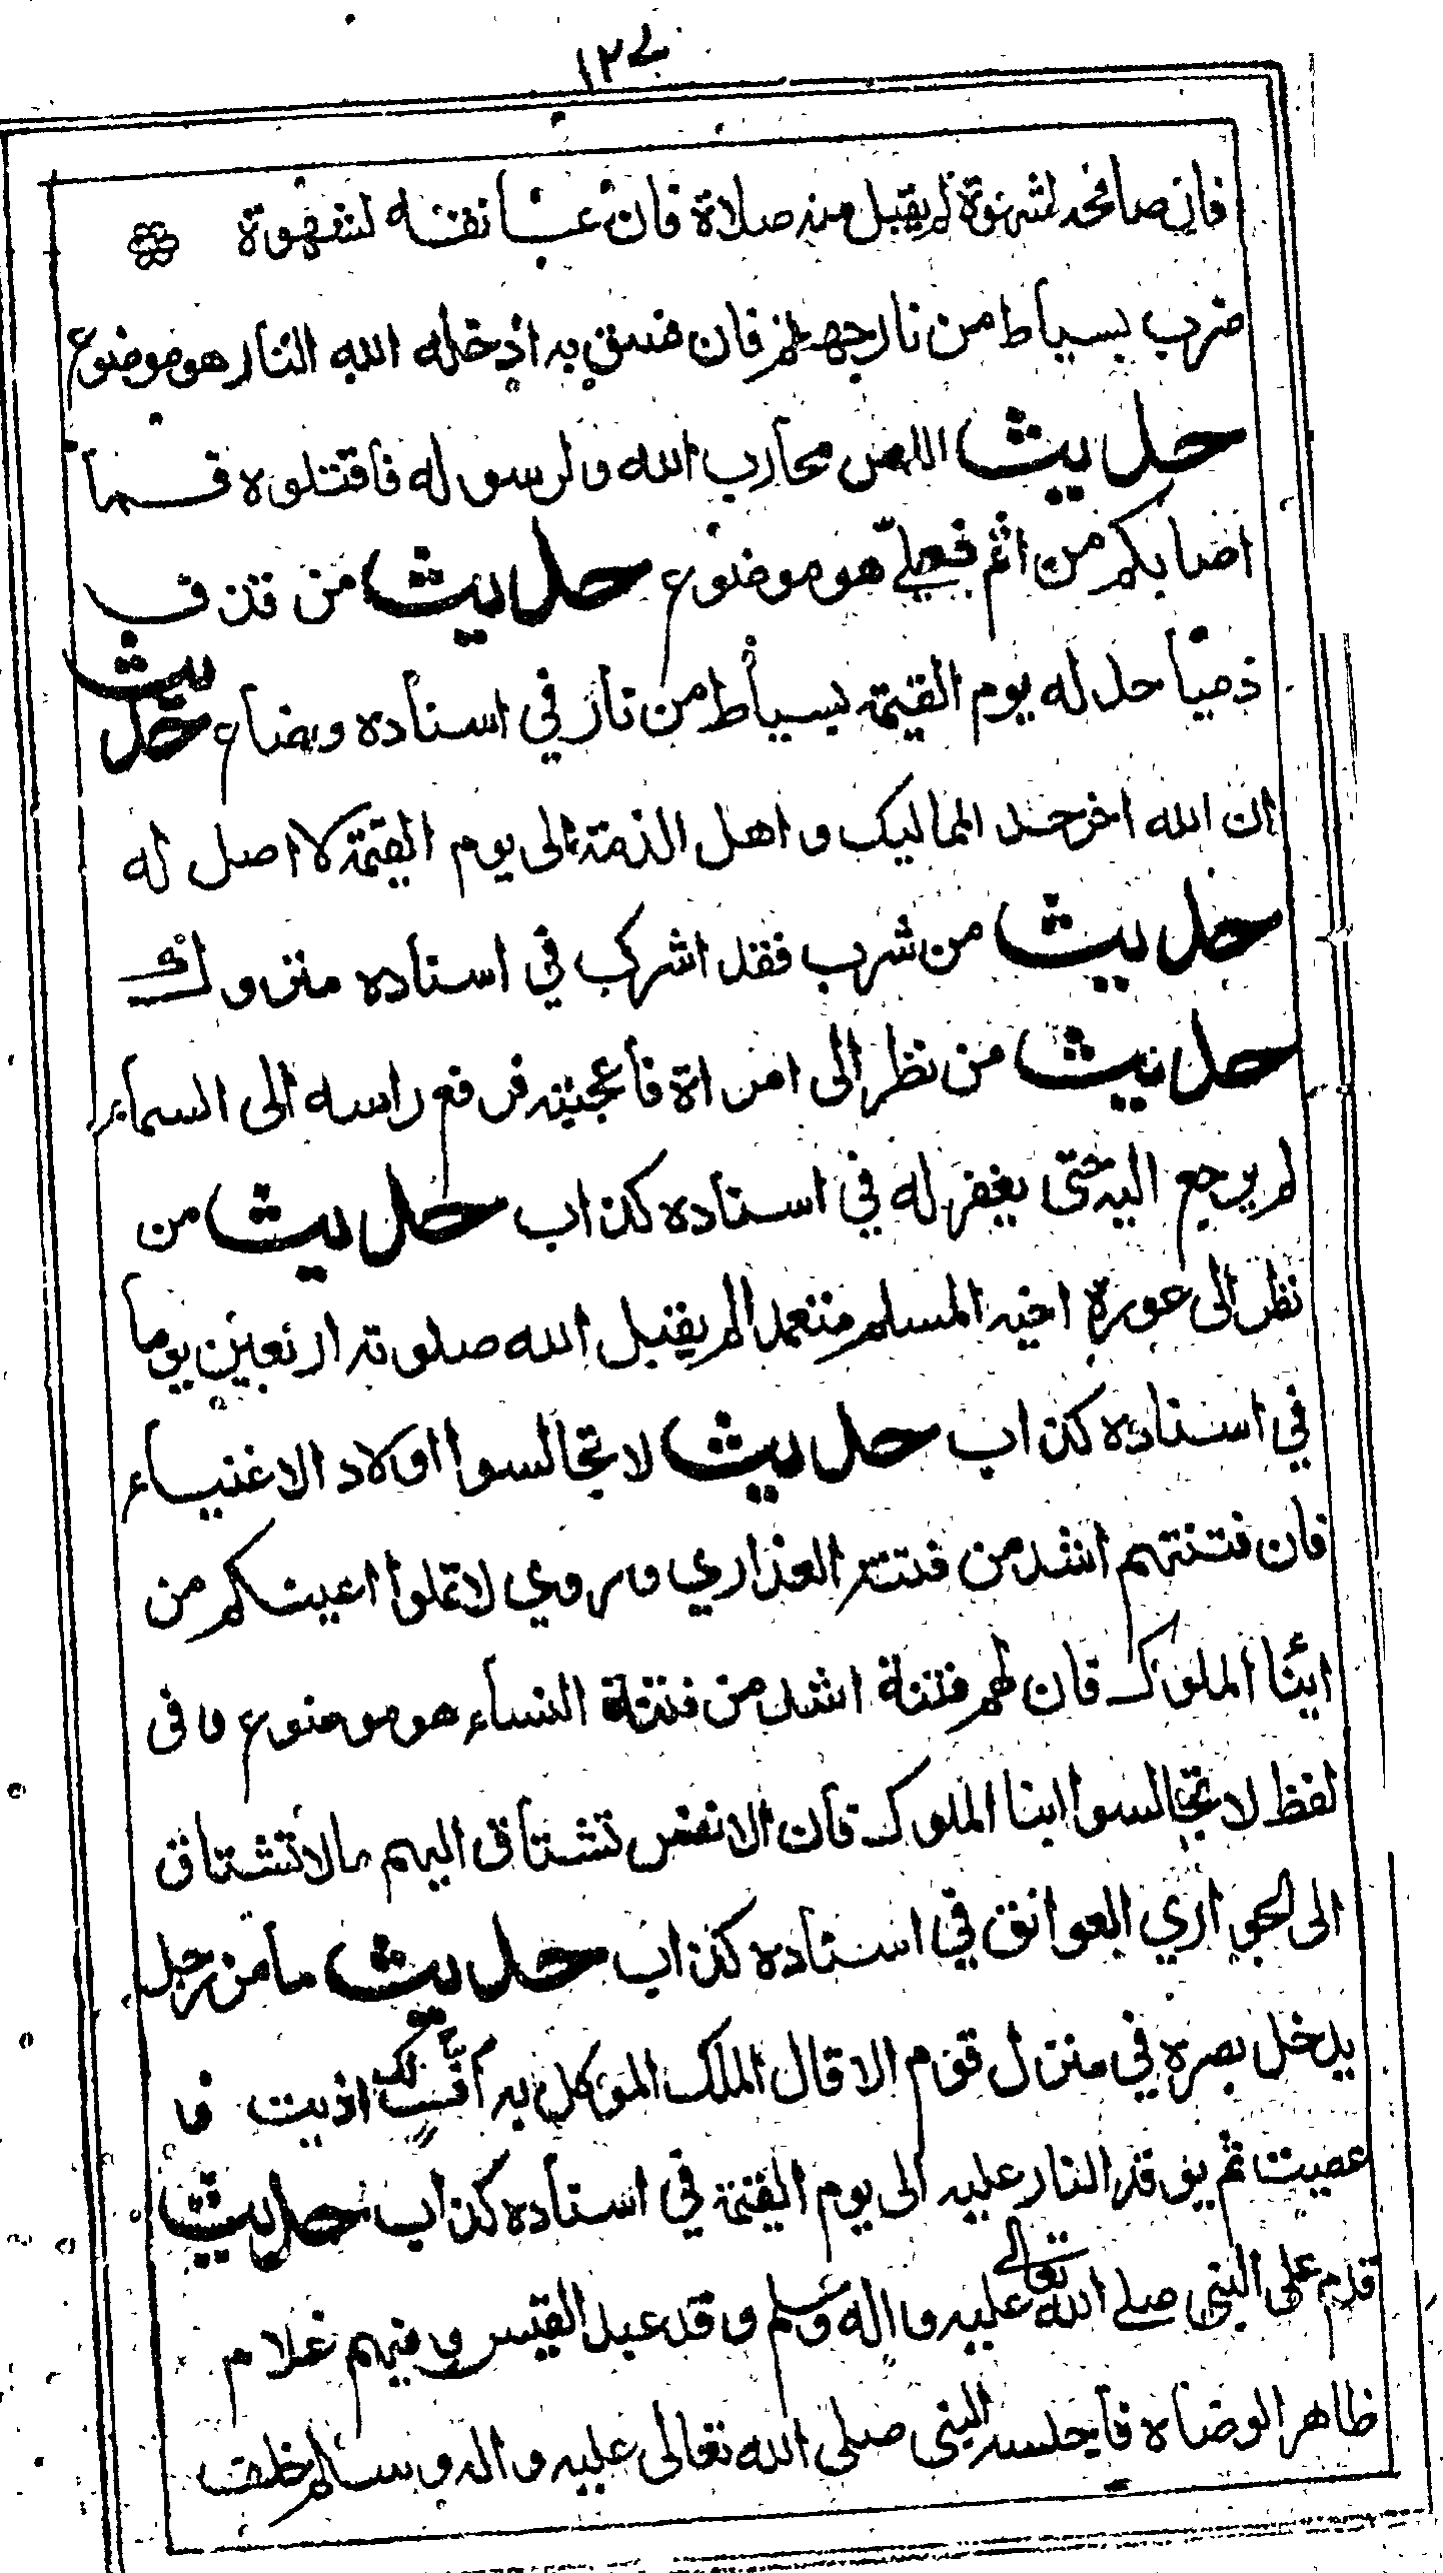 ١٢٧
فان صافحه لشهوة لم يقبل منه صلاة فان عانقته لشهوة
ضرب بسياط من نار جهنم فان فسق به ادخله الله النار هو موضوع
حديث اللص محارب الله ولرسوله فاقتلوه فما
اصابكم من اثم فعليّ هو موضوع حديث من قذف
ذميا حد له يوم القيمة بسياط من نار في اسناده وضاع حديث
ان الله اخر حد المماليك و اهل الذمة الى يوم القيمة لا اصل له
حديث من شرب فقد اشرك في اسناده متروك
حديث من نظر الى امراة فاعجبته فرفع راسه الى السماء
لم يرجع اليه حتى يغفر له في اسناده كذاب حديث من
نظر الى عورة اخيه المسلم متعمدا لم يقبل الله صلوته اربعين يوما
في اسناده كذاب حديث لا تجالسوا اولاد الاغنياء
فان فتنتهم اشد من فتنة العذاري وروي لا تملوا اعينكم من
ابنا الملوك فان لهم فتنة اشد من فتنة النساء هو موضوع وفى
لفظ لا تجالسوا ابنا الملوك فان الانفس تشتاق اليهم ما لا تشتاق
الى الجواري العواتق في اسناده كذاب حديث ما من رجل
يدخل بصره في منزل قوم الا قال الملك الموكل به أف لك اذيت و
عصيت ثم يوقد النار عليه الى يوم القيمة في اسناده كذاب حديث
قدم على النبي صلى الله تعالى عليه واله وسلم وفد عبد القيس وفيهم غلام
ظاهر الوضاة فاجلسه النبى صلى الله تعالى عليه واله وسلم خلف